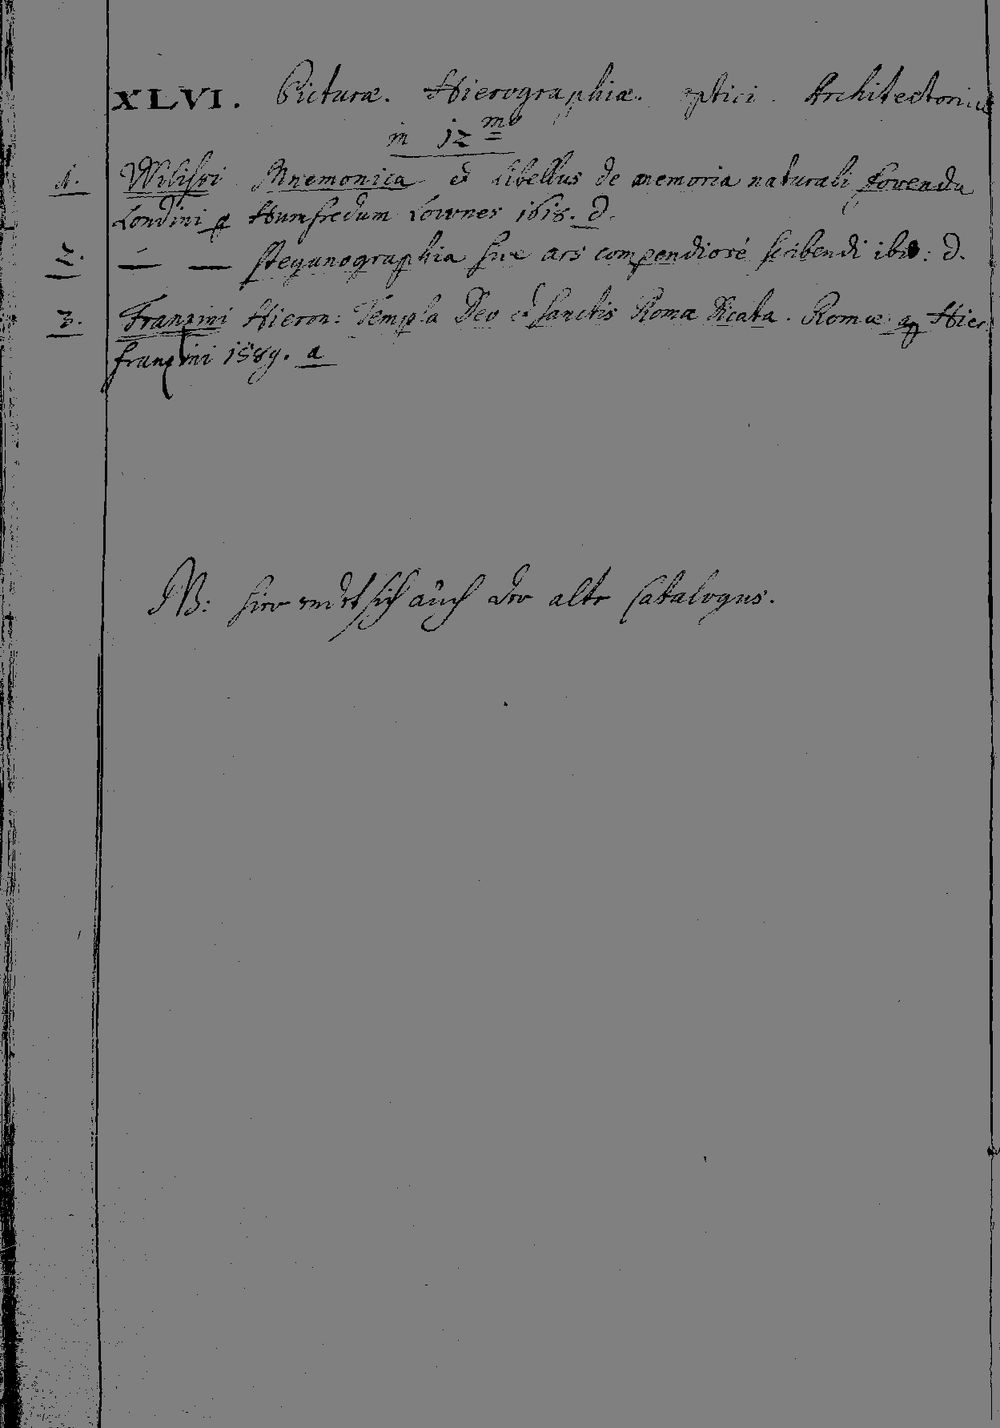 XLVI. Picturæ. Hierographiæ. optici. Architectonici
in 12mo
1. Willisii Mnemonica et libellus de memoria naturali fovenda
Londini p Humfredum Lownes 1618. d.
2. — — steganographia sive ars compendiosè scribendi ibid: d.
3. Franzini Hieron: Templa Deo et Sanctis Romæ Dicata. Romæ ap Hier
franzini 1589. a
NB: hier endet sich auch der alte Catalogus.